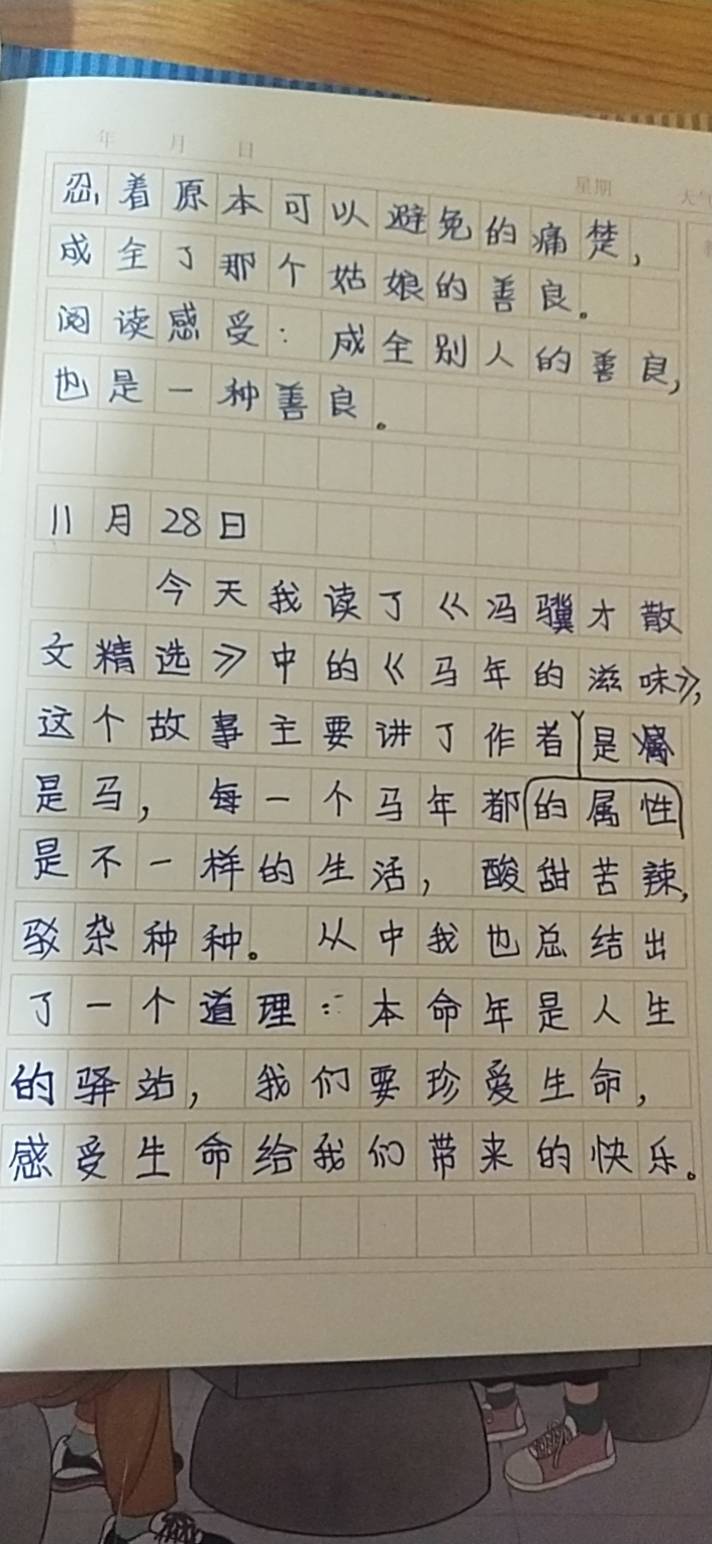 年 月 日
星期 天气
忍着原本可以避免的痛楚，
成全了那个姑娘的善良。
阅读感受：成全别人的善良，
也是一种善良。
11月28日
今天我读了《冯骥才散
文精选》中的《马年的滋味》，
这个故事主要讲了作者是
是马，每一个马年都的属性
是不一样的生活，酸甜苦辣，
驳杂种种。从中我也总结出
了一个道理：本命年是人生
的驿站，我们要珍爱生命，
感受生命给我们带来的快乐。